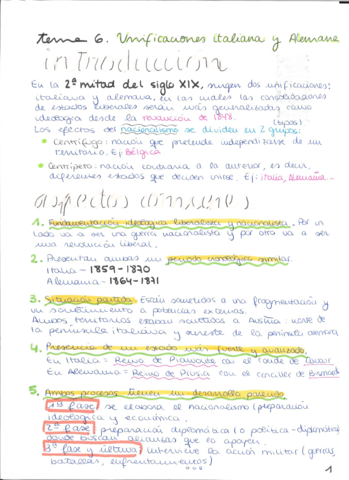 tema 6. Unificaciones italiana y Alemana
introducción
En la 2ª mitad del siglo XIX, surgen dos unificaciones:
italiana y alemana, en las cuales las consolidaciones
de estados liberales serán más generalizadas como
ideología desde la revolución de 1848.
(tipos)
Los efectos del nacionalismo se dividen en 2 grupos:
• Centrífugo: nación que pretende independizarse de un
territorio. Ej: Bélgica
• Centrípeto: nación contraria a la anterior, es decir,
diferentes estados que deciden unirse. Ej: italia, Alemania...
aspectos comunes
1. Fundamentación ideológica liberalista y nacionalista. Por un
lado va a ser una guerra nacionalista y por otro va a ser
una revolución liberal.
2. Presentan ambas un periodo cronológico similar.
Italia - 1859-1870
Alemania - 1864-1871
3. Situación partida. Están sometidos a una fragmentación y
un sometimiento a potencias externas.
Ambos territorios estaban sometidos a Austria: norte de
la península italiana y sureste de la península
4. Presencia de un estado más fuerte y avanzado.
En Italia = Reino de Piamonte con el conde de Cavour
En Alemania = Reino de Prusia con el canciller de Bismarck
5. Ambos procesos tienen un desarrollo parecido
1ª fase: se elabora el nacionalismo (preparación
ideológica y económica.
2ª fase: preparación diplomática (o político-diplomática)
donde buscan alianzas que lo apoyen.
3ª fase y última: interviene la acción militar (guerras,
batallas, enfrentamientos)
1